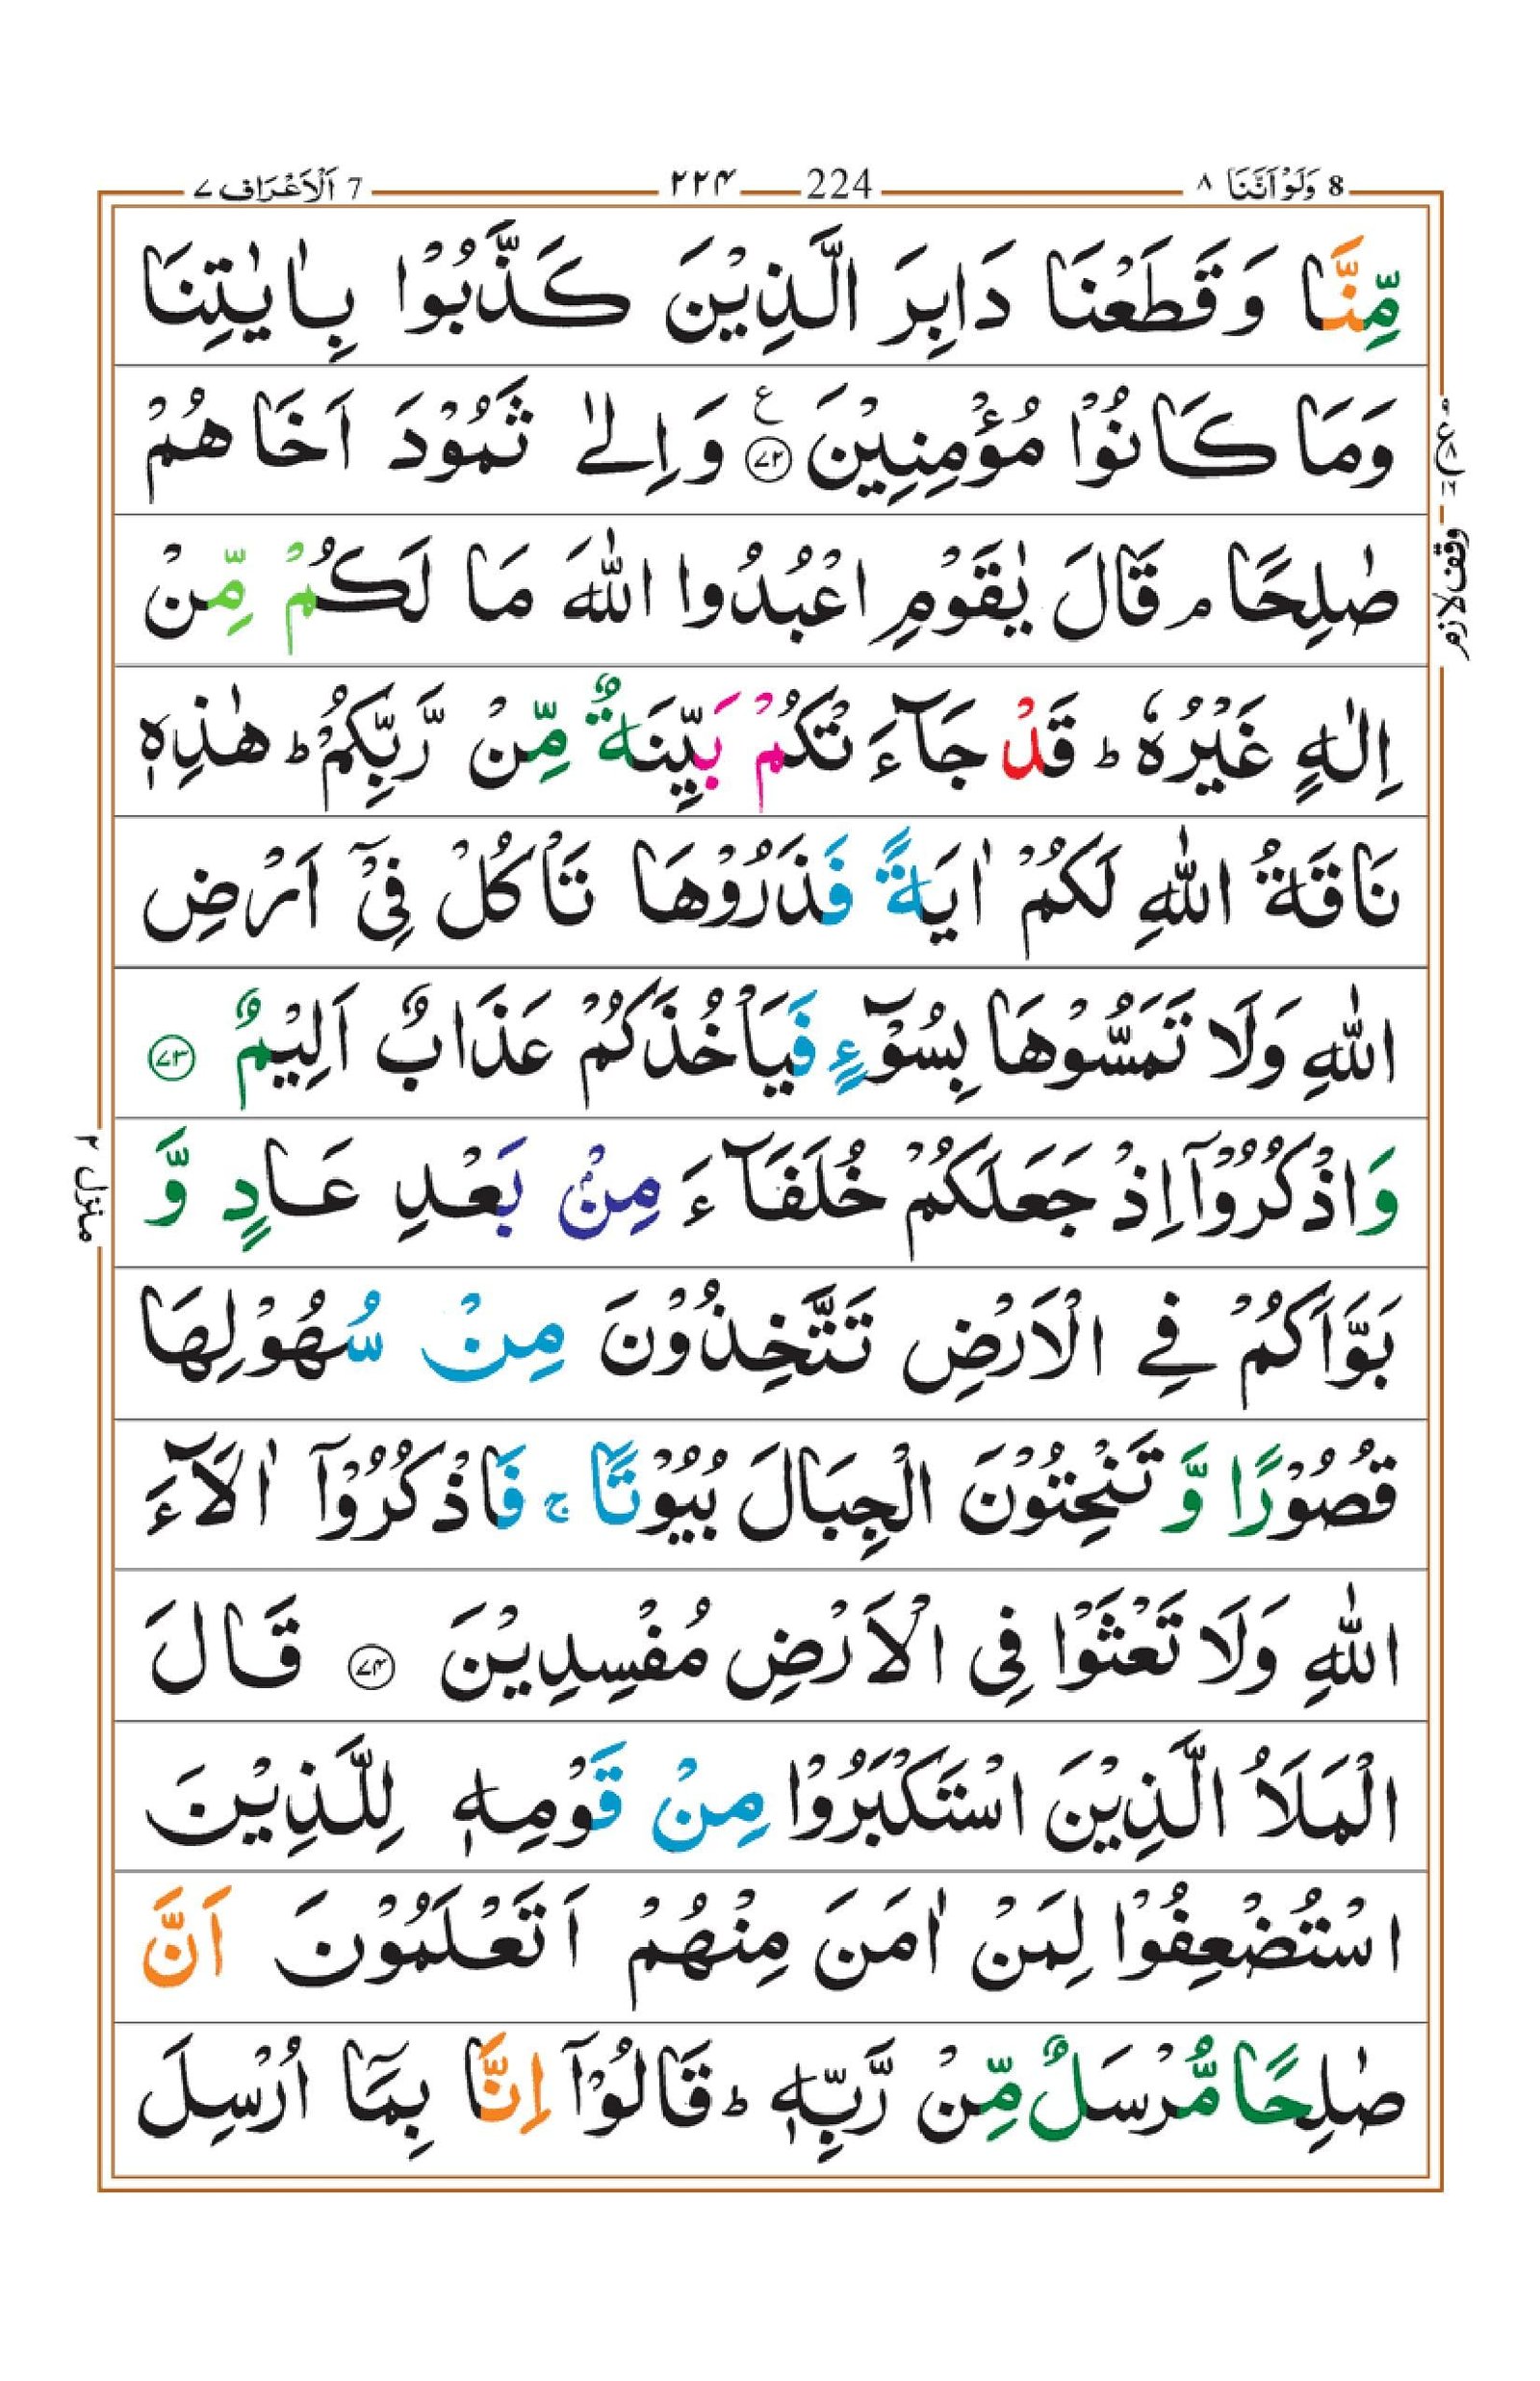 7 اَلْاَعْرَاف ۷ ۲۲۴ 224 8 وَلَوْ اَنَّنَا ۸
مِّنَّا وَ قَطَعْنَا دَابِرَ الَّذِيْنَ كَذَّبُوْا بِاٰيٰتِنَا
وَمَا كَانُوْا مُؤْمِنِيْنَ ﴿۷۲﴾ ع وَ اِلٰى ثَمُوْدَ اَخَاهُمْ
صٰلِحًا ۘ قَالَ يٰقَوْمِ اعْبُدُوا اللّٰهَ مَا لَكُمْ مِّنْ
اِلٰهٍ غَيْرُهٗ ؕ قَدْ جَآءَتْكُمْ بَيِّنَةٌ مِّنْ رَّبِّكُمْ ؕ هٰذِهٖ
نَاقَةُ اللّٰهِ لَكُمْ اٰيَةً فَذَرُوْهَا تَاْكُلْ فِيْۤ اَرْضِ
اللّٰهِ وَلَا تَمَسُّوْهَا بِسُوْٓءٍ فَيَاْخُذَكُمْ عَذَابٌ اَلِيْمٌ ﴿۷۳﴾
وَاذْكُرُوْۤا اِذْ جَعَلَكُمْ خُلَفَآءَ مِنْۢ بَعْدِ عَادٍ وَّ
بَوَّاَكُمْ فِي الْاَرْضِ تَتَّخِذُوْنَ مِنْ سُهُوْلِهَا
قُصُوْرًا وَّ تَنْحِتُوْنَ الْجِبَالَ بُيُوْتًا ۚ فَاذْكُرُوْۤا اٰلَآءَ
اللّٰهِ وَلَا تَعْثَوْا فِي الْاَرْضِ مُفْسِدِيْنَ ﴿۷۴﴾ قَالَ
الْمَلَاُ الَّذِيْنَ اسْتَكْبَرُوْا مِنْ قَوْمِهٖ لِلَّذِيْنَ
اسْتُضْعِفُوْا لِمَنْ اٰمَنَ مِنْهُمْ اَتَعْلَمُوْنَ اَنَّ
صٰلِحًا مُّرْسَلٌ مِّنْ رَّبِّهٖ ؕ قَالُوْۤا اِنَّا بِمَاۤ اُرْسِلَ
وقف لازم
منزل ۲